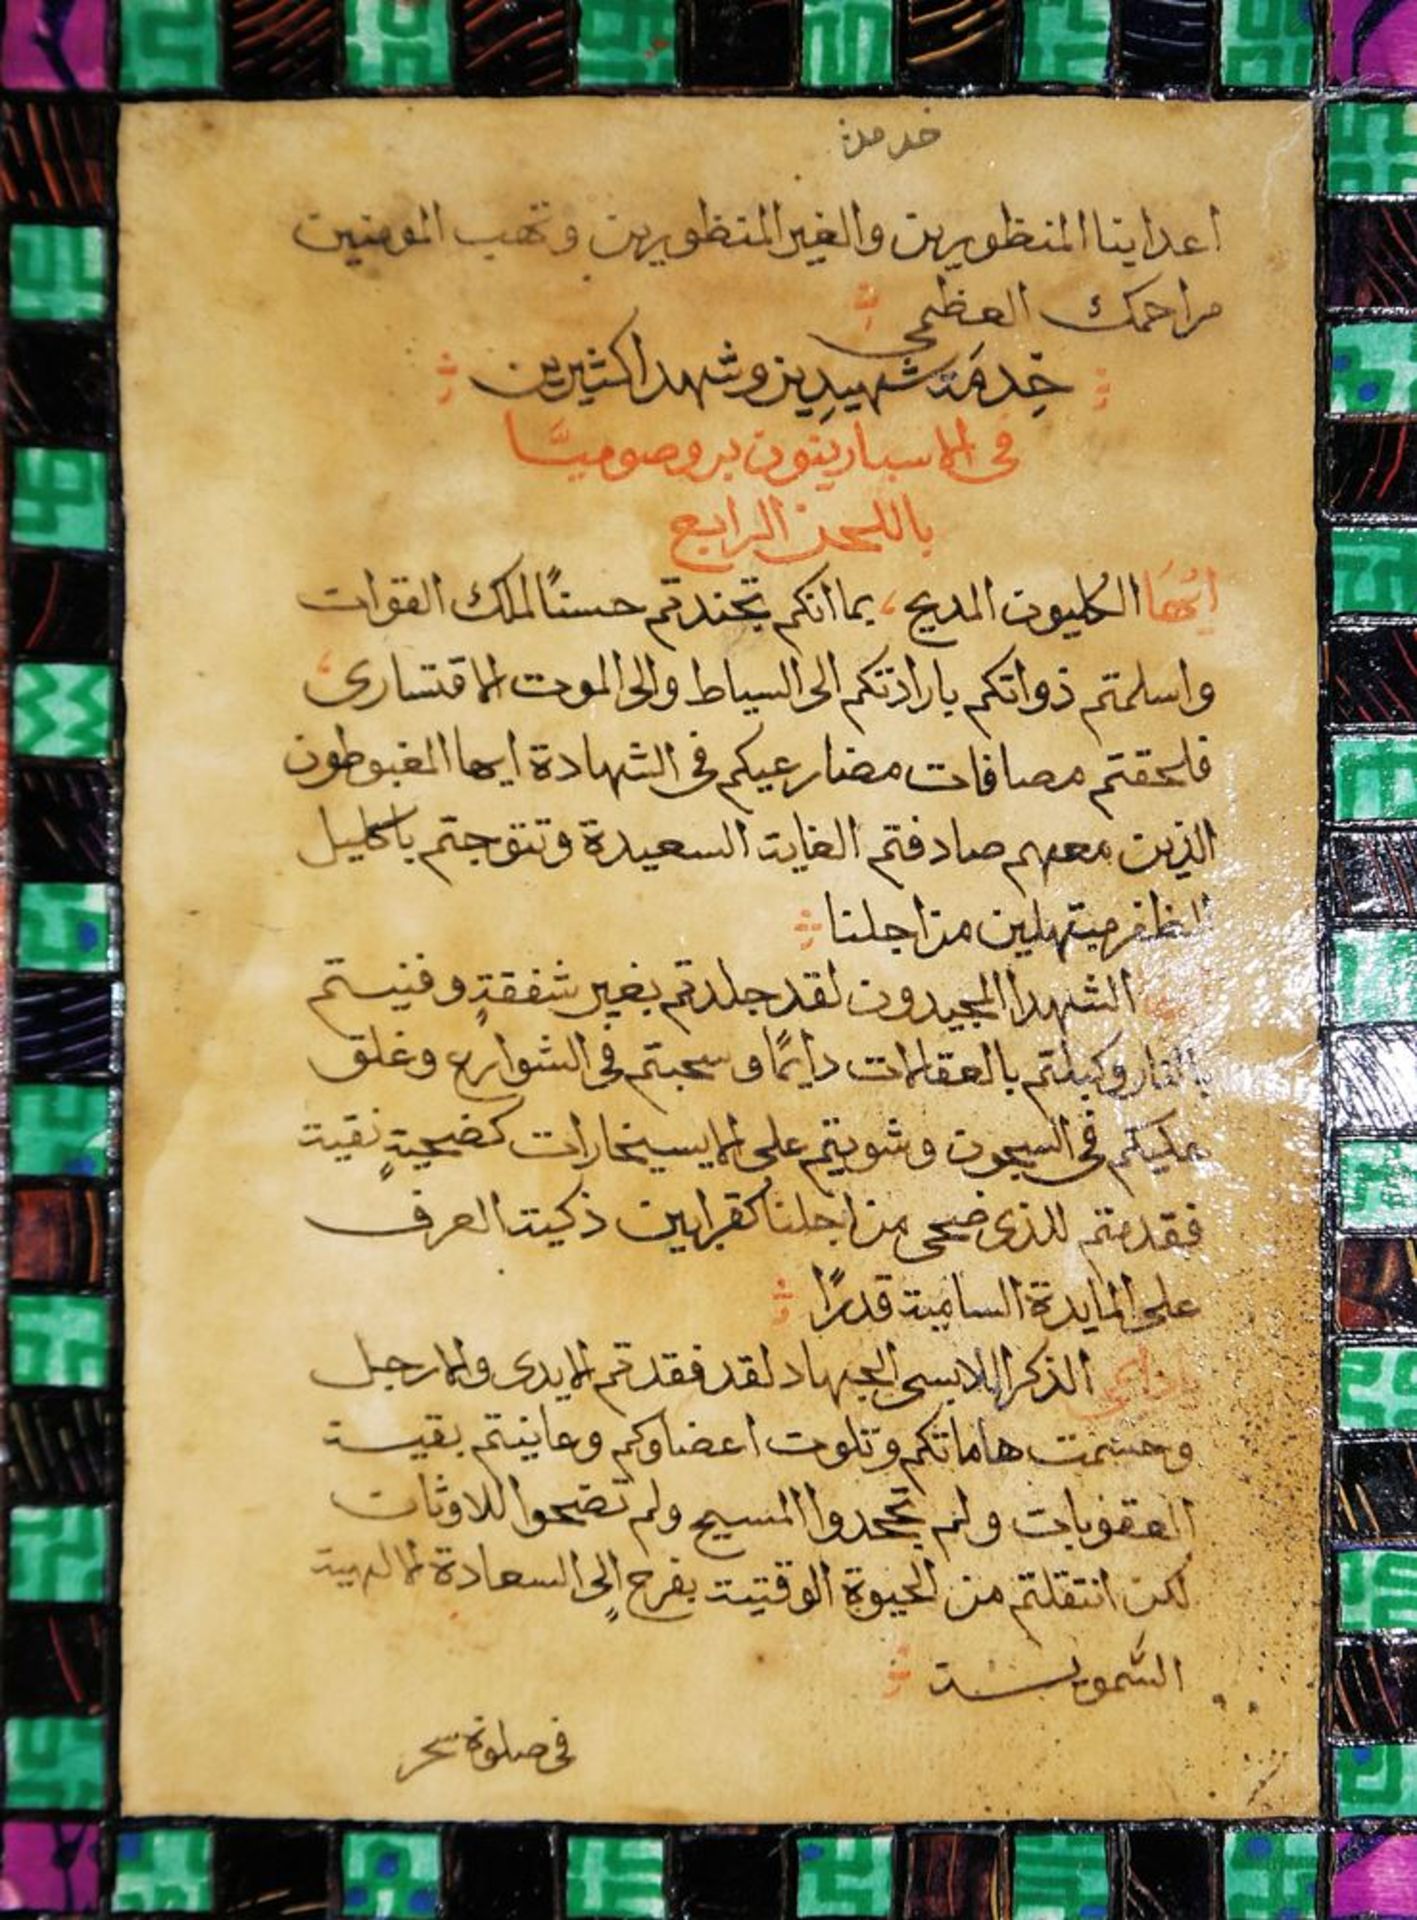 خدمة
اعداينا المنظورين والغير المنظورين وتهب المومنين
مراحمك العظمى
خِدمَة شهيدِين وشهدا كثيرين
فى الاسباريتون بروصوميَّا
باللحن الرابع
ايُّهَا الكليون المديح، بما انكم تجندتم حسنًا لملك القوات
واسلمتم ذواتكم بارادتكم الى السياط والى الموت الاقتسارى،
فلحقتم مصافات مضارعيكم فى الشهادة ايها المغبوطون
الذين معهم صادفتم الغاية السعيدة وتتوجتم باكليل
الظفر مبتهلين من اجلنا
الشهدا المجيدون لقد جلدتم بغير شفقةٍ وفنيتم
بالنار وكبلتم بالعقالات دايمًا وسحبتم فى الشوارع وغلق
عليكم فى السجون وشويتم على الايسيخارات كضحيةٍ نقية
فقدمتم للذى ضحى من اجلنا كقرابين ذكية العرف
على المايدة السامية قدرًا
الذكر اللابسى الجهاد لقد فقدتم الايدى والارجل
وهشمت هاماتكم وتلوت اعضاوكم وعاينتم بقية
العقوبات ولم تجحدوا المسيح ولم تضحوا للاوثان
لكن انتقلتم من الحيوة الوقتية بفرحٍ الى السعادة الالهية
السَّموية
فى صلوة سحر